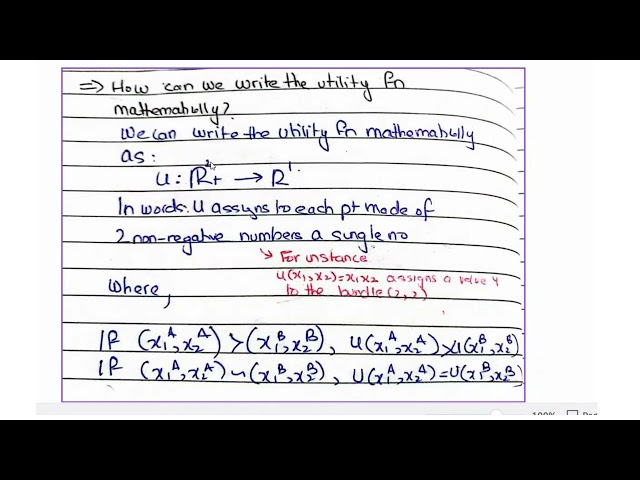 ⇒ How can we write the utility fn
mathematically?
We can write the utility fn mathematically
as:
U: R²₊ → R¹.
In words. U assigns to each pt made of
2 non-negative numbers a single no
↘ For instance
U(x₁,x₂)=x₁x₂ assigns a value 4
to the bundle (2,2)
where,
If (x₁ᴬ,x₂ᴬ) > (x₁ᴮ,x₂ᴮ), U(x₁ᴬ,x₂ᴬ)>U(x₁ᴮ,x₂ᴮ)
If (x₁ᴬ,x₂ᴬ) ~ (x₁ᴮ,x₂ᴮ), U(x₁ᴬ,x₂ᴬ)=U(x₁ᴮ,x₂ᴮ)
100%